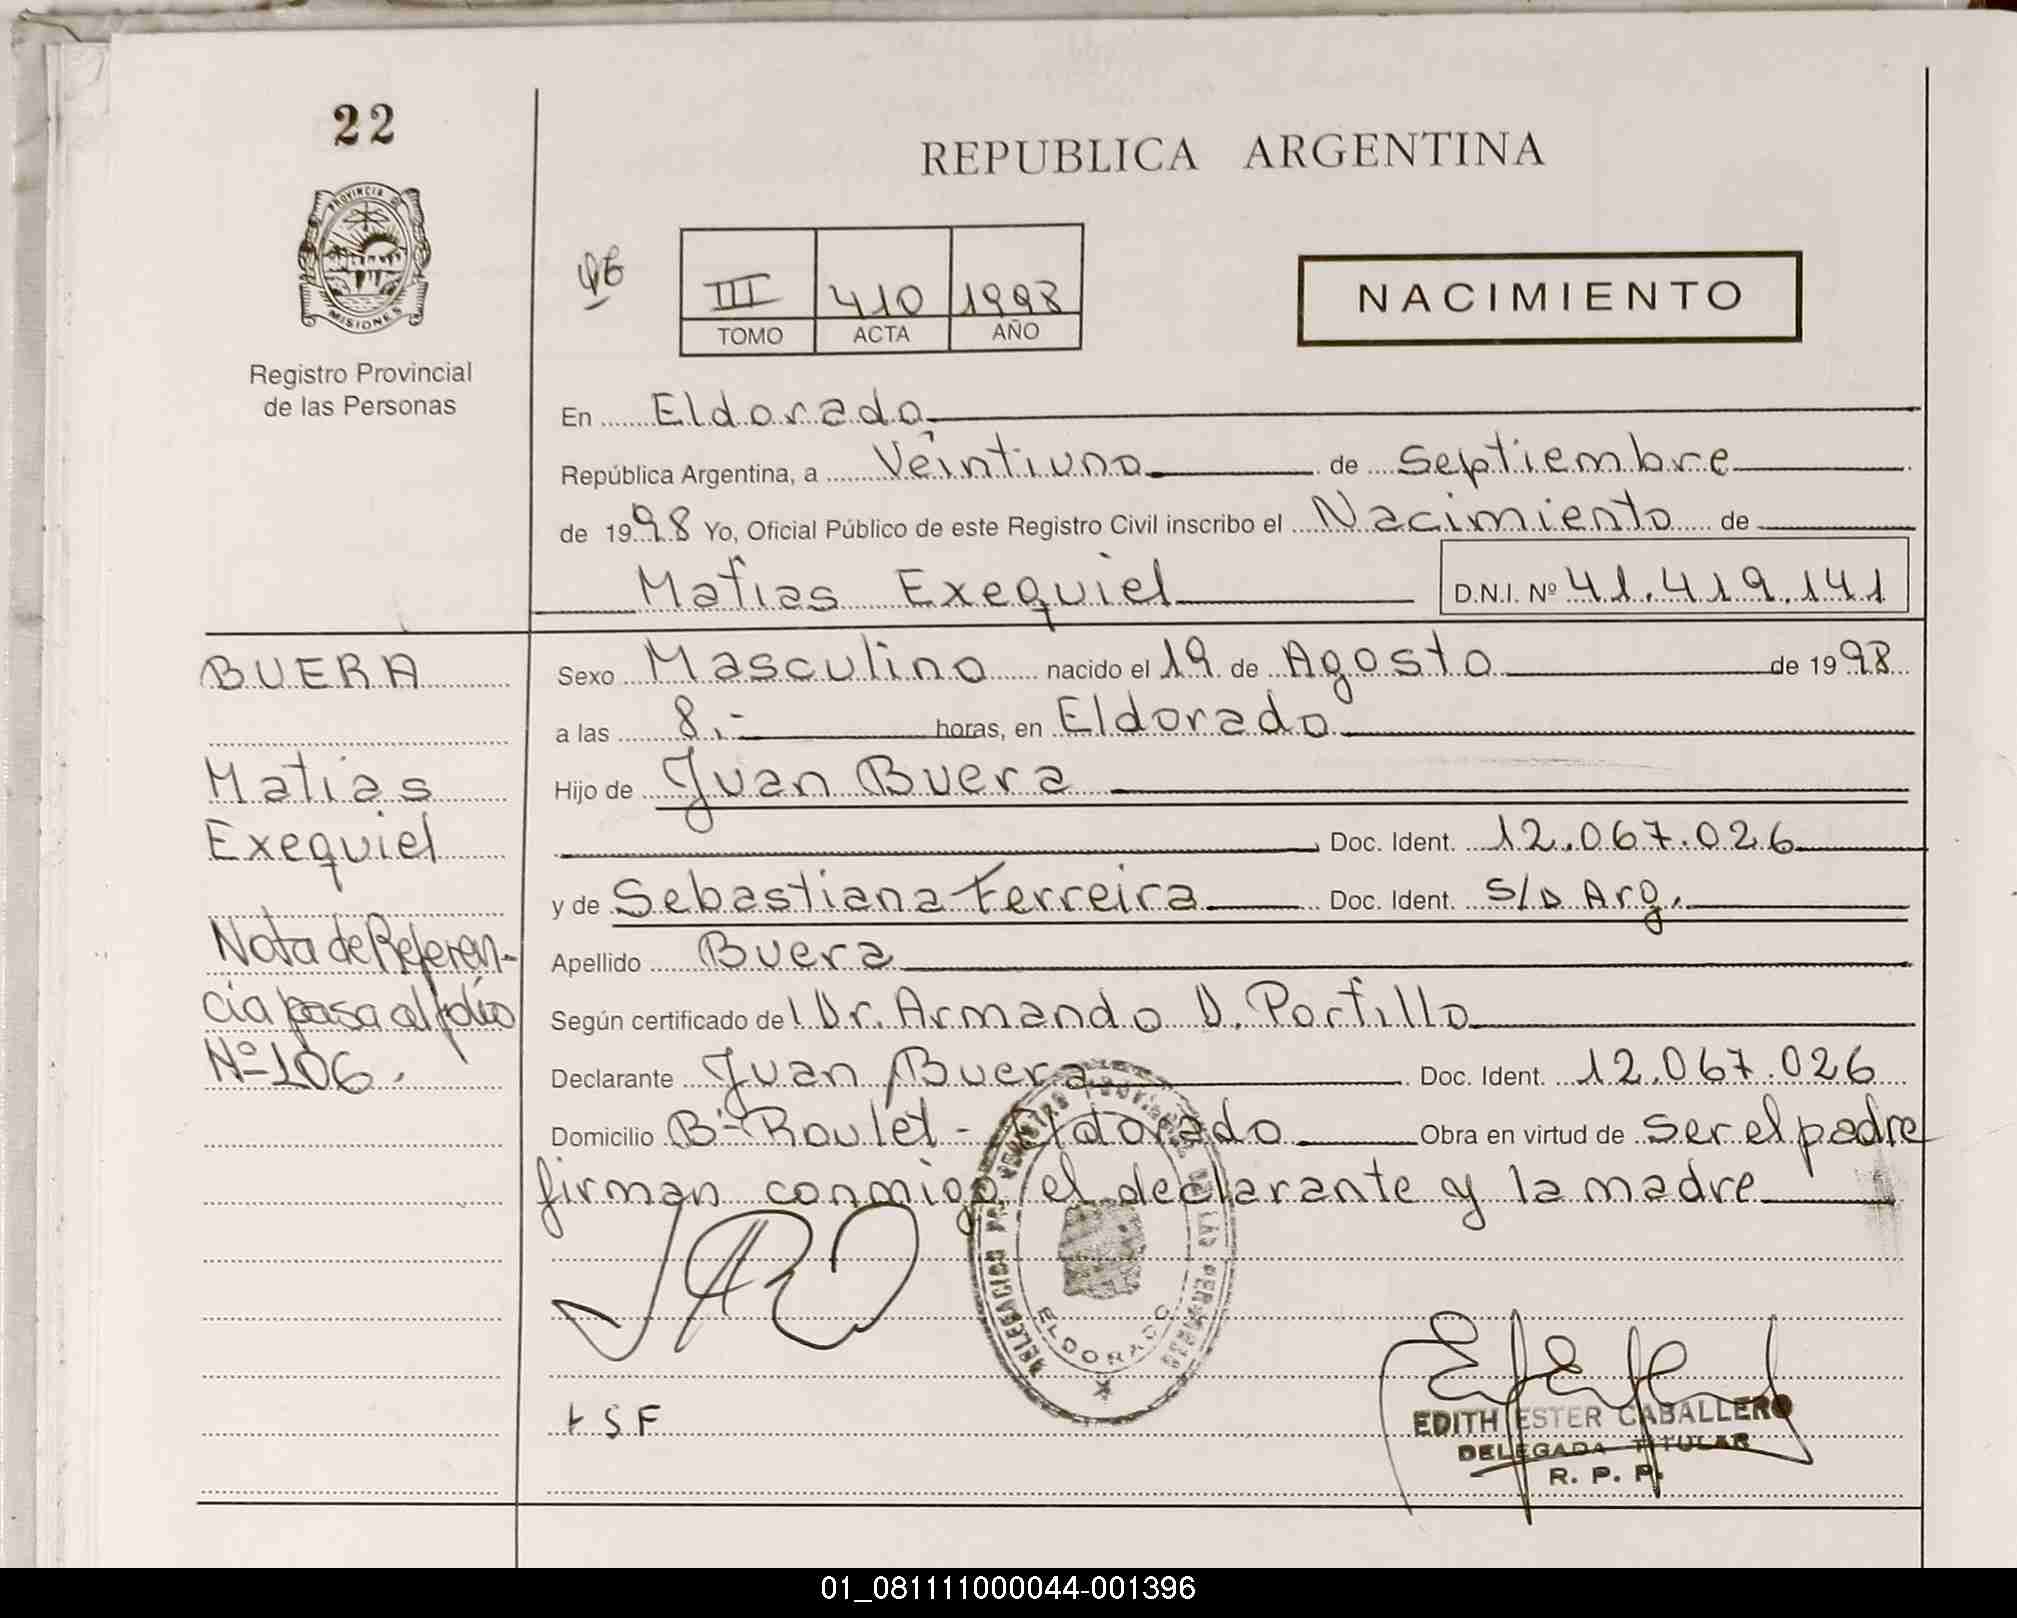 22
REPUBLICA ARGENTINA
PROVINCIA DE
MISIONES
Registro Provincial
de las Personas
III 410 1998
TOMO ACTA AÑO
NACIMIENTO
En Eldorado
República Argentina, a Veintiuno de Septiembre
de 1998 Yo, Oficial Público de este Registro Civil inscribo el Nacimiento de
Matias Exequiel D.N.I. Nº 41.419.141
BUERA
Matias
Exequiel
Nota de Referen-
cia pasa al folio
Nº 106.
Sexo Masculino nacido el 19 de Agosto de 1998
a las 8.- horas, en Eldorado
Hijo de Juan Buera
Doc. Ident. 12.067.026
y de Sebastiana Ferreira Doc. Ident. S/D Arg.
Apellido Buera
Según certificado del Dr. Armando D. Portillo
Declarante Juan Buera Doc. Ident. 12.067.026
Domicilio Bº Roulet - Eldorado Obra en virtud de ser el padre
firman conmigo el declarante y la madre
ELDORADO
t S F
EDITH ESTER CABALLERO
DELEGADA TITULAR
R. P. P.
01_081111000044-001396